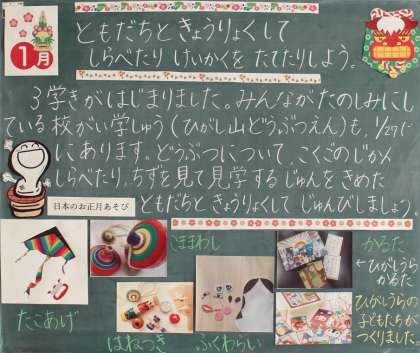 1月
ともだちときょうりょくして
しらべたり けいかくを たてたりしよう。
3学きがはじまりました。みんながたのしみにし
ている校がい学しゅう(ひがし山どうぶつえん)も、1/27(に
にあります。どうぶつについて、こくごのじかん
しらべたり、ちずを見て見学するじゅんをきめた
ともだちと きょうりょくして じゅんびしましょう。
日本のお正月あそび
たこあげ
こままわし
はねつき
ふくわらい
かるた
←ひがしうら
かるた
ひがしうらの
子どもたちが
つくりました